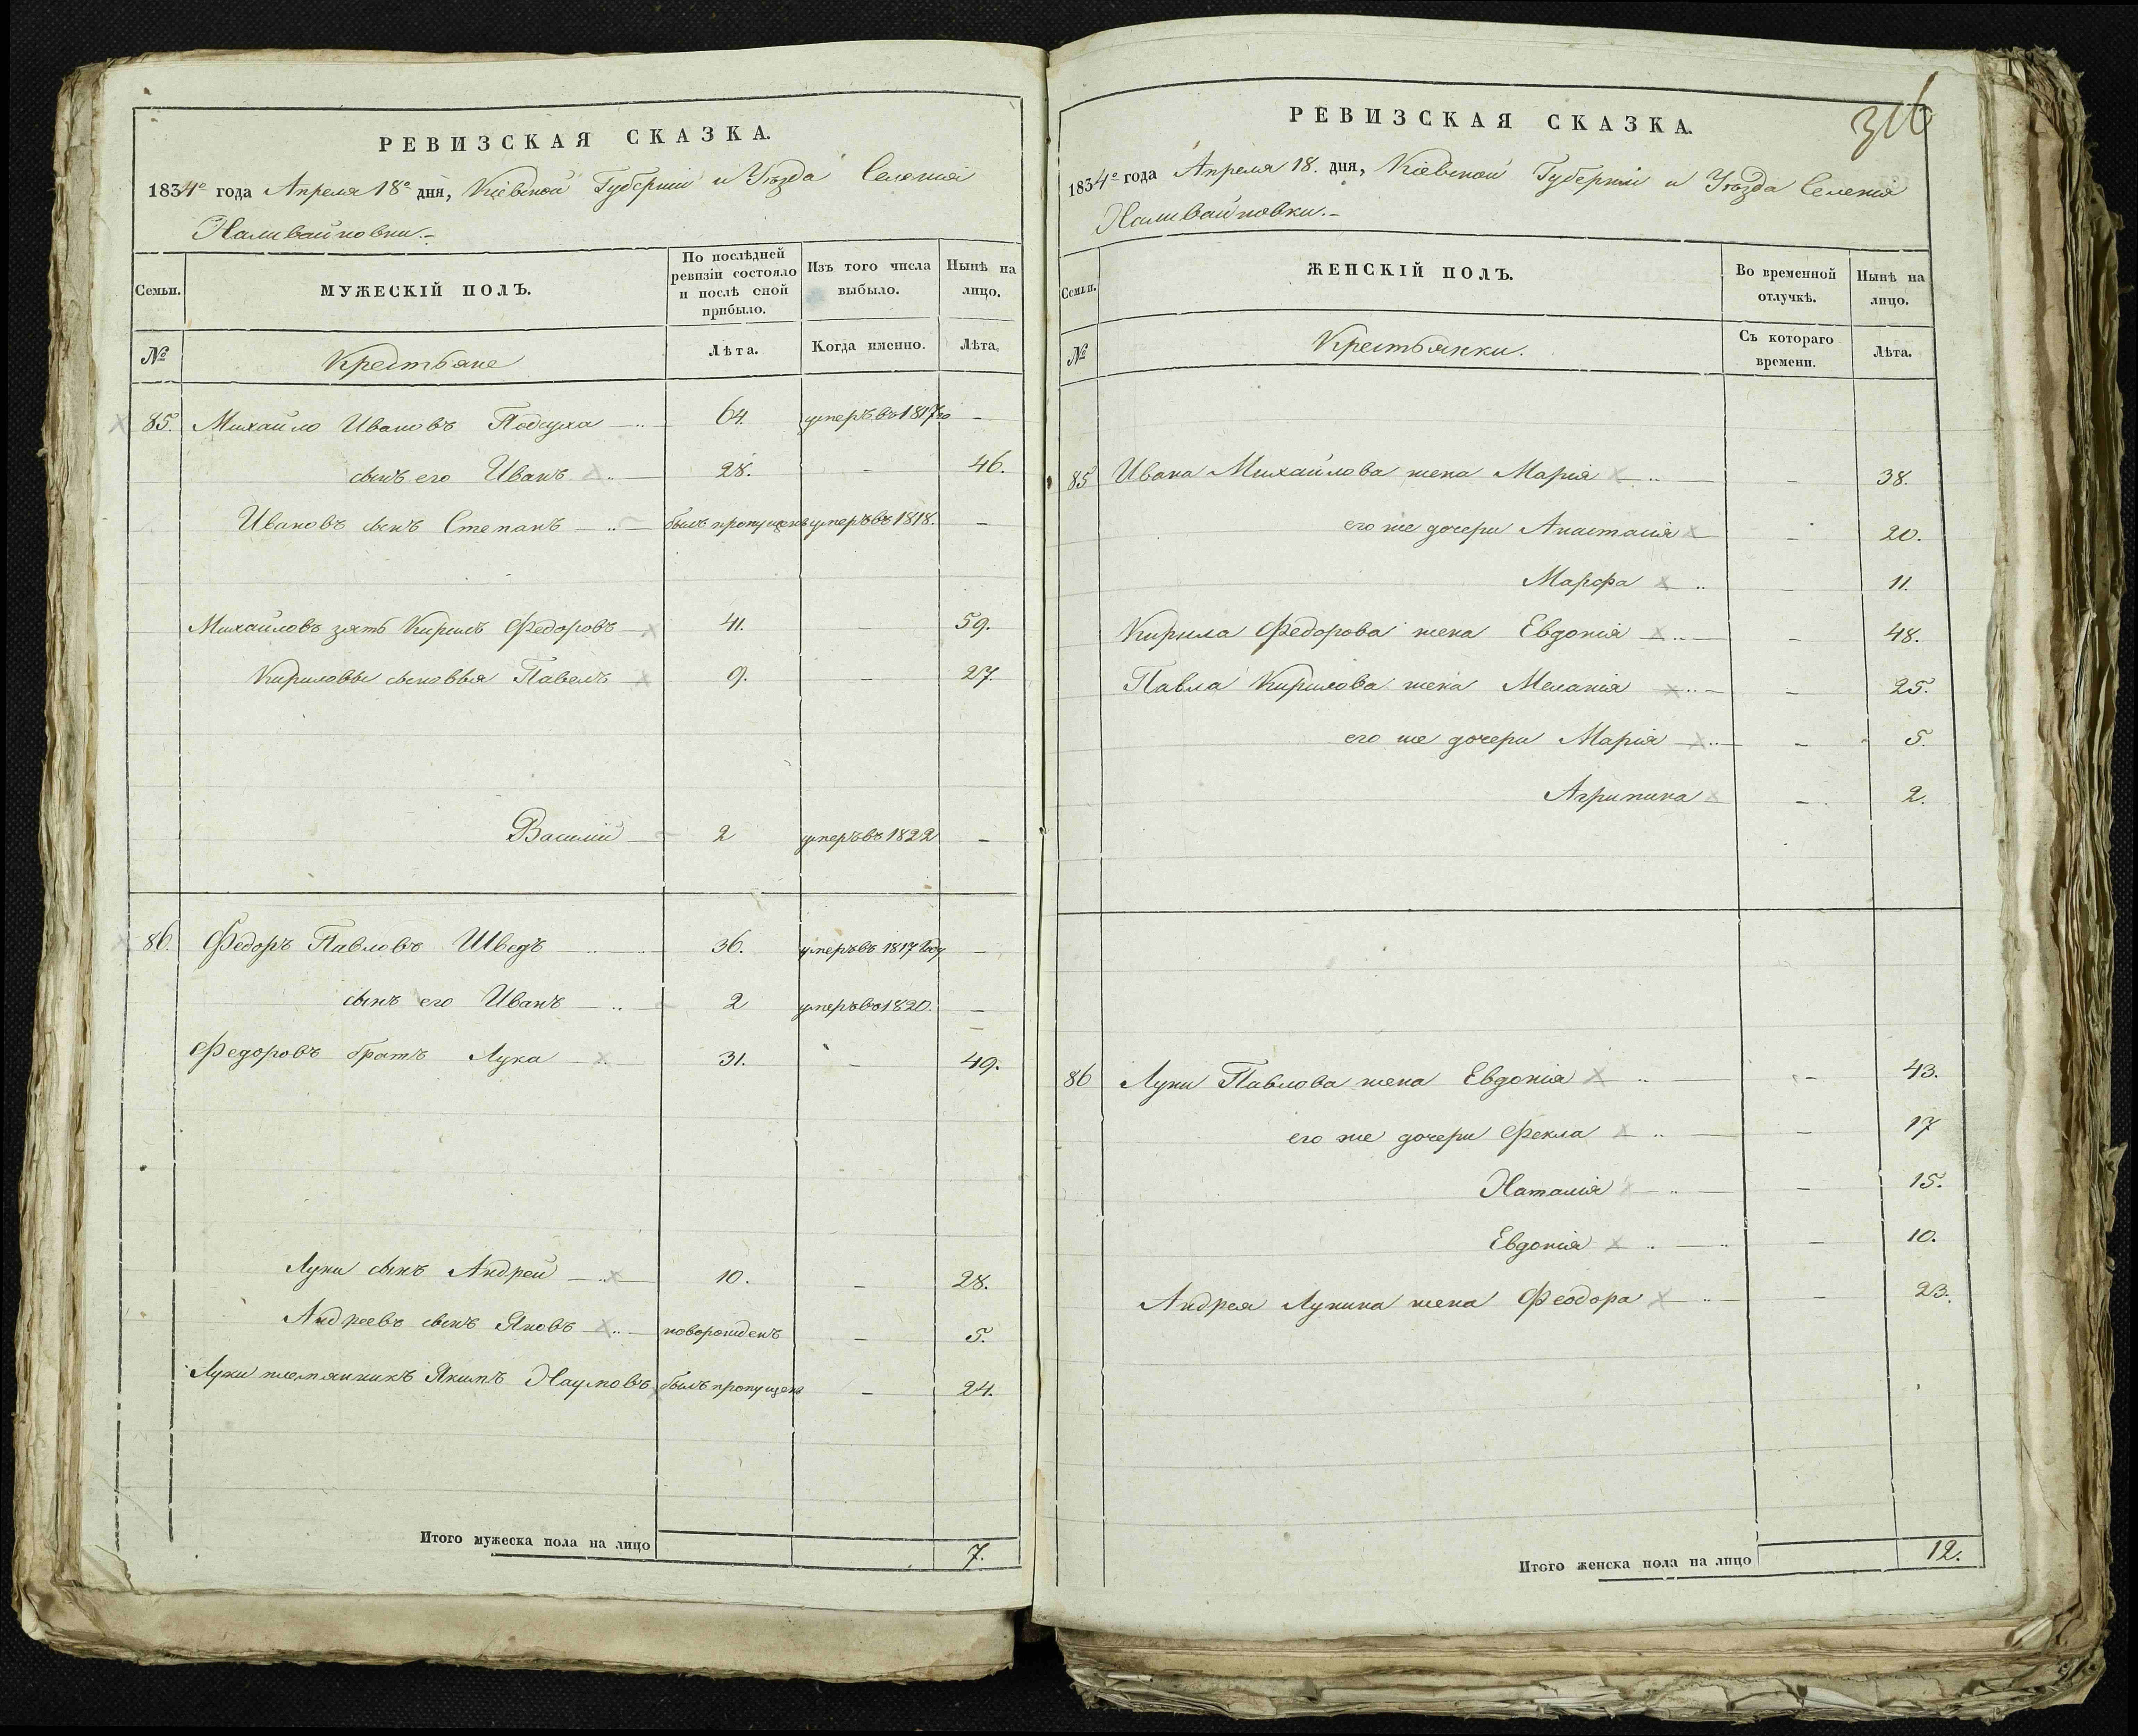 РЕВИЗСКАЯ СКАЗКА.
1834го года Апреля 18го дня, Кіевской Губерніи и Уѣзда Селенія
Наливайковки.
Семьи. МУЖЕСКІЙ ПОЛЪ. По послѣдней ревизіи состояло и послѣ оной прибыло. Изъ того числа выбыло. Нынѣ на лицо.
№ Крестьяне Лѣта. Когда именно. Лѣта.
85. Михайло Ивановъ Подуха 64. умеръ въ 1817го —
сынъ его Иванъ 28. — 46.
Ивановъ сынъ Степанъ былъ пропущенъ умеръ въ 1818. —
Михайловъ зять Кирилъ Федоровъ 41. — 59.
Кириловы сыновья Павелъ 9. — 27.
Василий 2 умеръ въ 1822 —
86. Федоръ Павловъ Шведъ 36. умеръ въ 1817 году —
сынъ его Иванъ 2 умеръ въ 1820. —
Федоровъ братъ Лука 31. — 49.
Луки сынъ Андрей 10. — 28.
Андреевъ сынъ Яковъ новорожденъ — 5.
Луки племянникъ Якимъ Наумовъ былъ пропущенъ — 24.
Итого мужеска пола на лицо 7.
316
РЕВИЗСКАЯ СКАЗКА.
1834го года Апреля 18. дня, Кіевской Губерніи и Уѣзда Селенія
Наливайковки.
Семьи. ЖЕНСКІЙ ПОЛЪ. Во временной отлучкѣ. Нынѣ на лицо.
№ Крестьянки. Съ котораго времени. Лѣта.
85 Ивана Михайлова жена Марія — 38.
его же дочери Анастасия — 20.
Марфа — 11.
Кирила Федорова жена Евдокія — 48.
Павла Кирилова жена Меланія — 25.
его же дочери Марія — 5.
Агрипина — 2.
86 Луки Павлова жена Евдокія — 43.
его же дочери Фекла — 17
Наталія — 15.
Евдокія — 10.
Андрея Лукина жена Феодора — 23.
Итого женска пола на лицо 12.